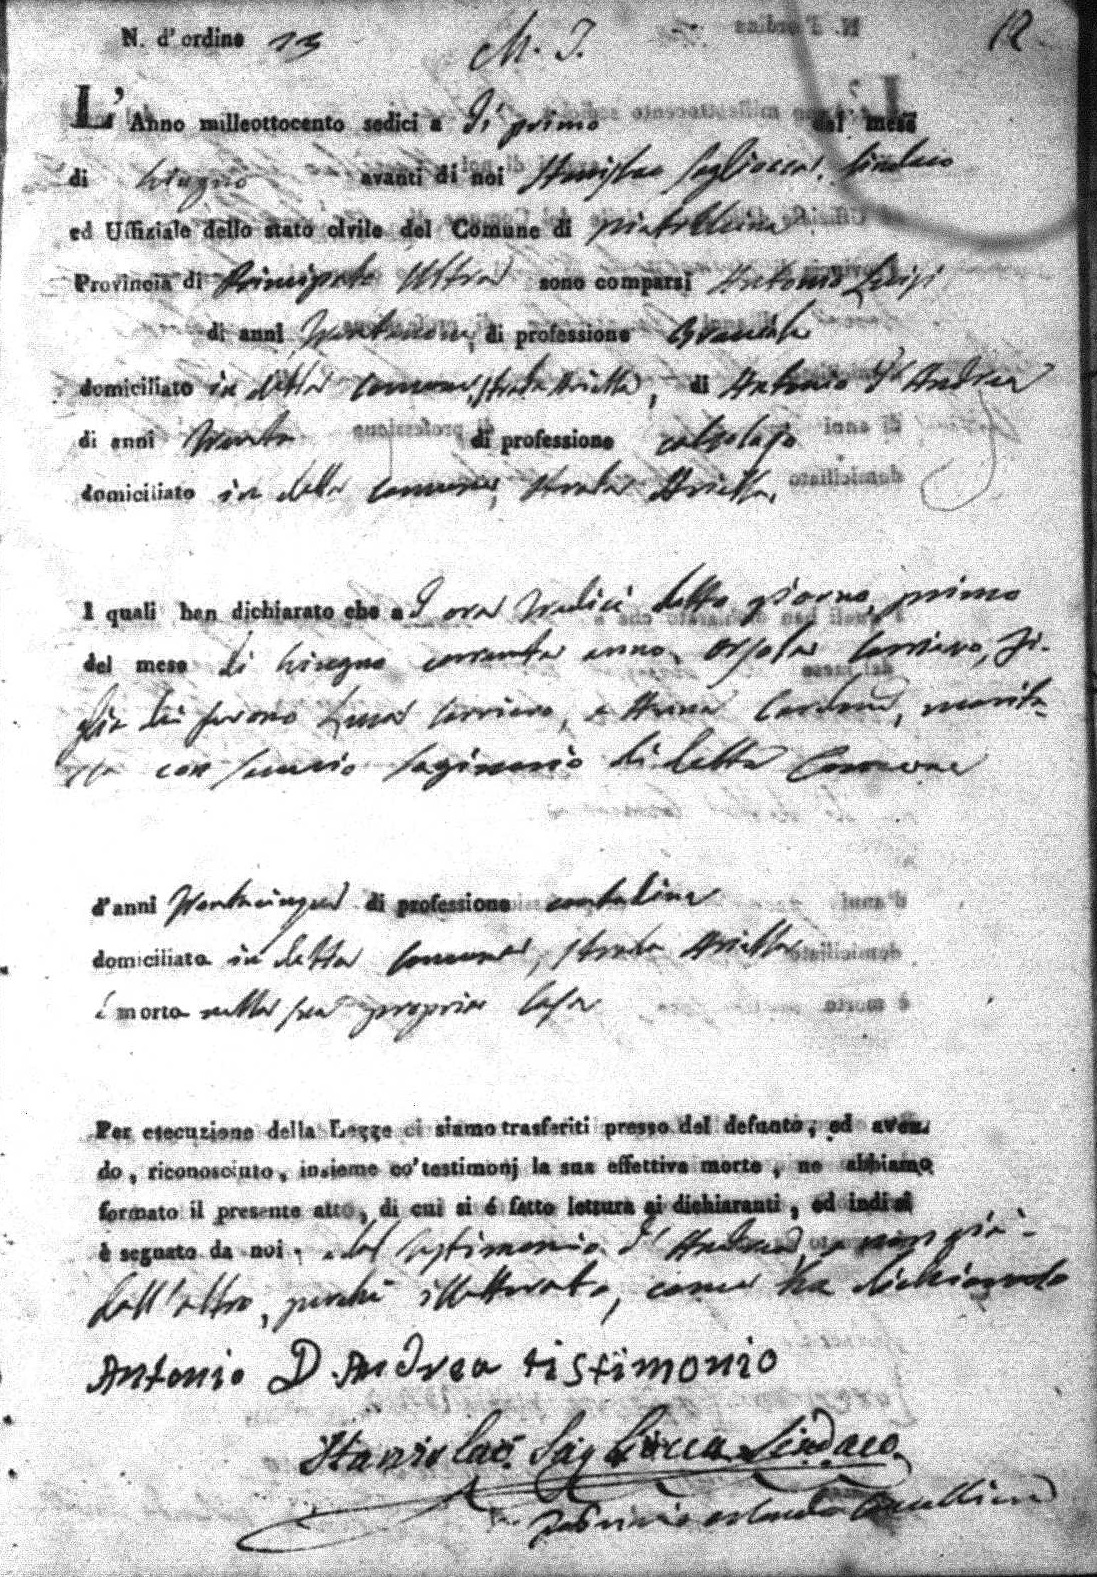 N. d'ordine 13 M. I. 12
L'Anno milleottocento sedici a dì primo del mese
di Giugno avanti di noi Stanislao Sagliocca Sindaco
ed Uffiziale dello stato civile del Comune di
Provincia di Principato Ultra sono comparsi Antonio Luigi
di anni di professione
domiciliato in detta comune, strada Arietta, di Antonio d'Andrea
di anni trenta di professione calzolajo
domiciliato in detta comune, strada Arietta,
I quali han dichiarato che a ora tredici detto giorno primo
del mese di Giugno corrente anno, Orsola Corriero, fi-
glia di furono Corriero, e Anna Cardone, marita-
ta con di detta Comune
d'anni trentacinque di professione contadina
domiciliato in detta Comune, strada Arietta
é morto nella sua propria casa
Per esecuzione della Legge ci siamo trasferiti presso del defunto, ed aven
do, riconosciuto, insieme co'testimonj la sua effettiva morte, ne abbiamo
formato il presente atto, di cui si é fatto lettura ai dichiaranti, ed indi si
è segnato da noi, dal testimonio d'Andrea, e non già
dall'altro, perchè illetterato, come ha dichiarato
Antonio D. Andrea tistimonio
Stanislao Sagliocca Sindaco